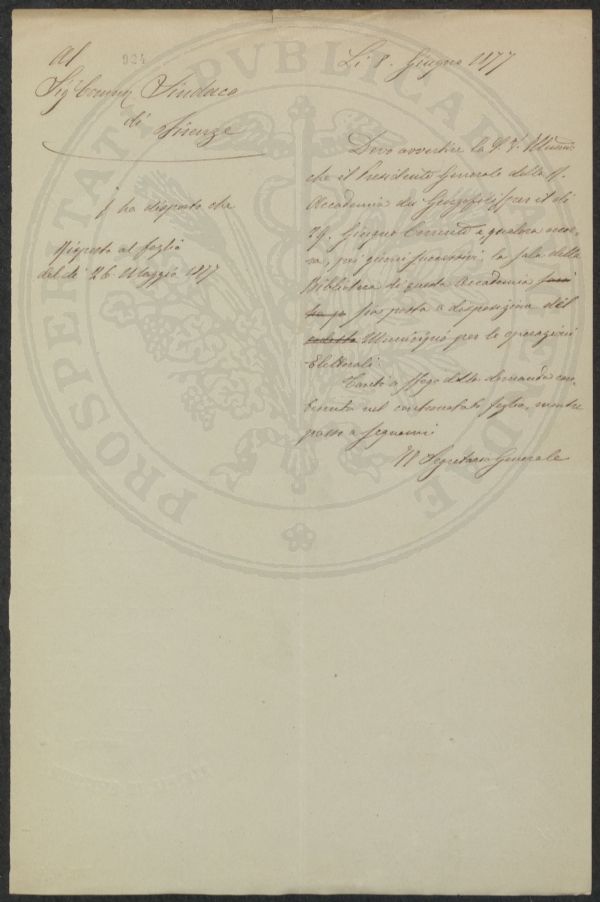 Al
924
Sig Comm Sindaco
di Firenze
ha disposto che
Risposta al foglio
del dì 26 Maggio 1877
Li 8. Giugno 1877
Devo avvertire la S. V. Illma
che il Presidente Generale della R.
Accademia dei Georgofili per il dì
Giugno corrente e qualora occor-
ra, pei giorni successivi, la sala della
Biblioteca di questa Accademia
sia posta a disposizione del
Municipio per le operazioni
Elettorali.
Tanto a sfogo della domanda con-
tenuta nel contronotato foglio, mentre
passo a segnarmi
Il Segretario Generale
PROSPERITATI PVBLICAE